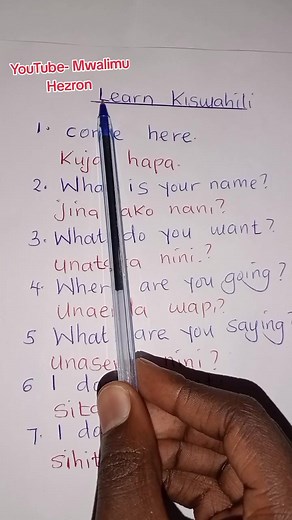 YouTube- Mwalimu
Hezron
Learn Kiswahili
1. come here.
Kuja hapa.
2. What is your name?
Jina ako nani?
3. What do you want?
unataka nini.?
4. Where are you going?
Unaenda wapi?
5 What are you saying?
unasema nini?
6 I do
7. I do